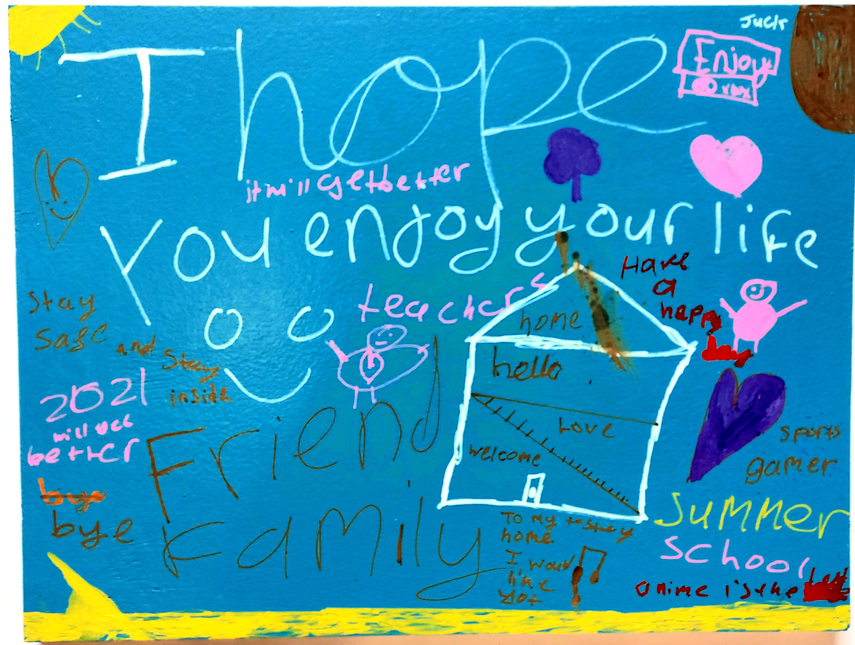 Enjoy
xbox
I hope
it will get better
You enjoy your life
Have
a
happy
teachers
home
Stay
Safe
and Stay
inside
hello
2021
will get
better
Friend
Love
welcome
sports
gamer
bye
Family
SUMMER
School
To my
to stay
home
I woud
like
anime is the